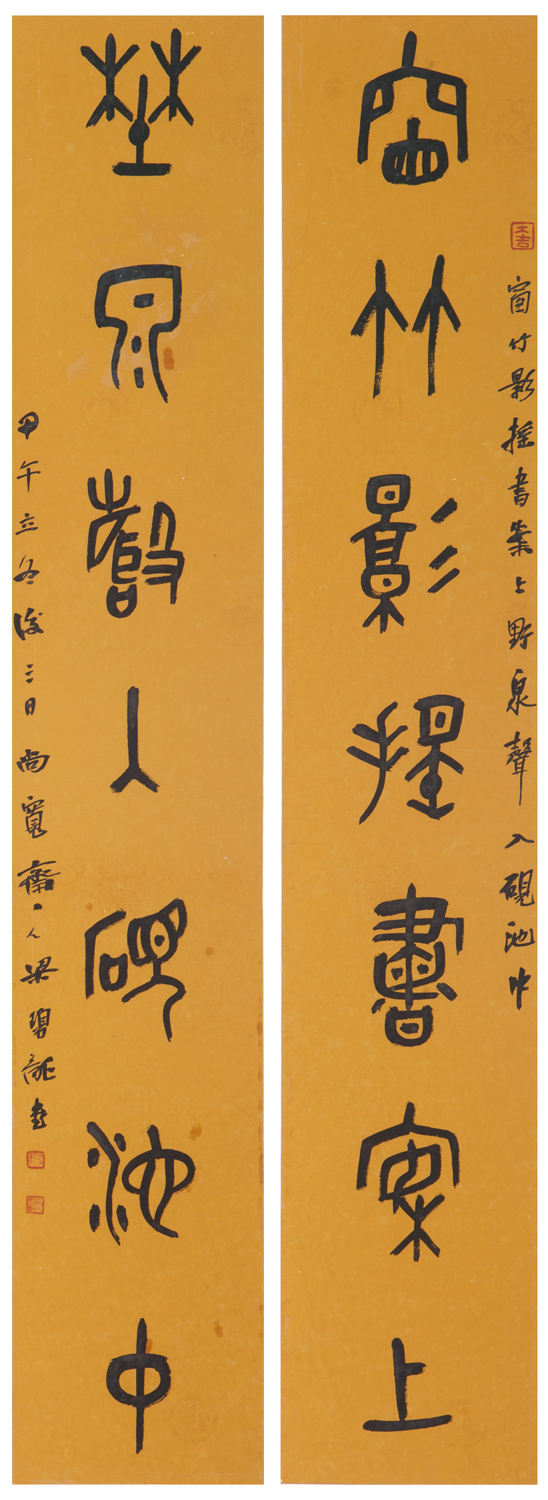 窗竹影摇書案上
窗竹影摇書案上野泉聲入硯池中
野泉聲入硯池中
甲午立冬後三日尚寬齋主人梁碧龍書